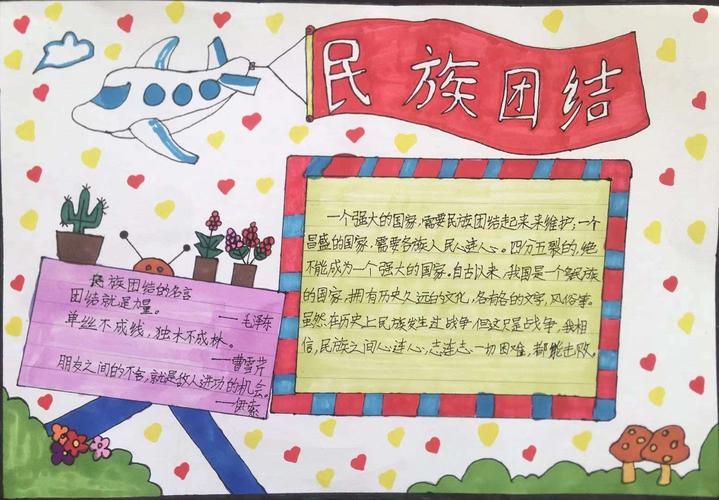 民族团结
民族团结的名言
团结就是力量。
——毛泽东
单丝不成线，独木不成林。
——曹雪芹
朋友之间的不合，就是敌人进功的机会。
——伊索
一个强大的国家，需要民族团结起来来维护；一个
昌盛的国家，需要各族人民人连人心。四分五裂的，绝
不能成为一个强大的国家。自古以来，我国是一个多民族
的国家，拥有历史久远的文化，各有各的文字，风俗等。
虽然在历史上民族发生过战争，但这只是战争，我相
信，民族之间心连心，志连志，一切困难，都能击败。